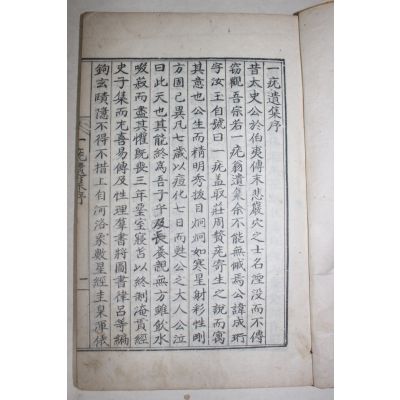 一疣遺集序
昔太史公於伯夷傳末悲巖穴之士名湮没而不傳
窃觀吾宗若一疣翁遺集余不能無慽焉公諱成珩
字汝王自號曰一疣盖取莊周贅疣寄生之説而寓
其意也公生而精明秀拔目炯炯如寒星射彩性剛
方固已異凡七歲以痘化七日而甦公之大人公泣
曰此天也其能終為吾子乎及長養親無方雖飮水
啜菽而盡其懽既喪三年堊室寢苫以終制淹貫經
史子集而尤喜易傳及性理羣書將圖書律呂等編
鉤玄賾隱不得不措上自河洛象數星經圭臬渾儀
一疣遺集序
一